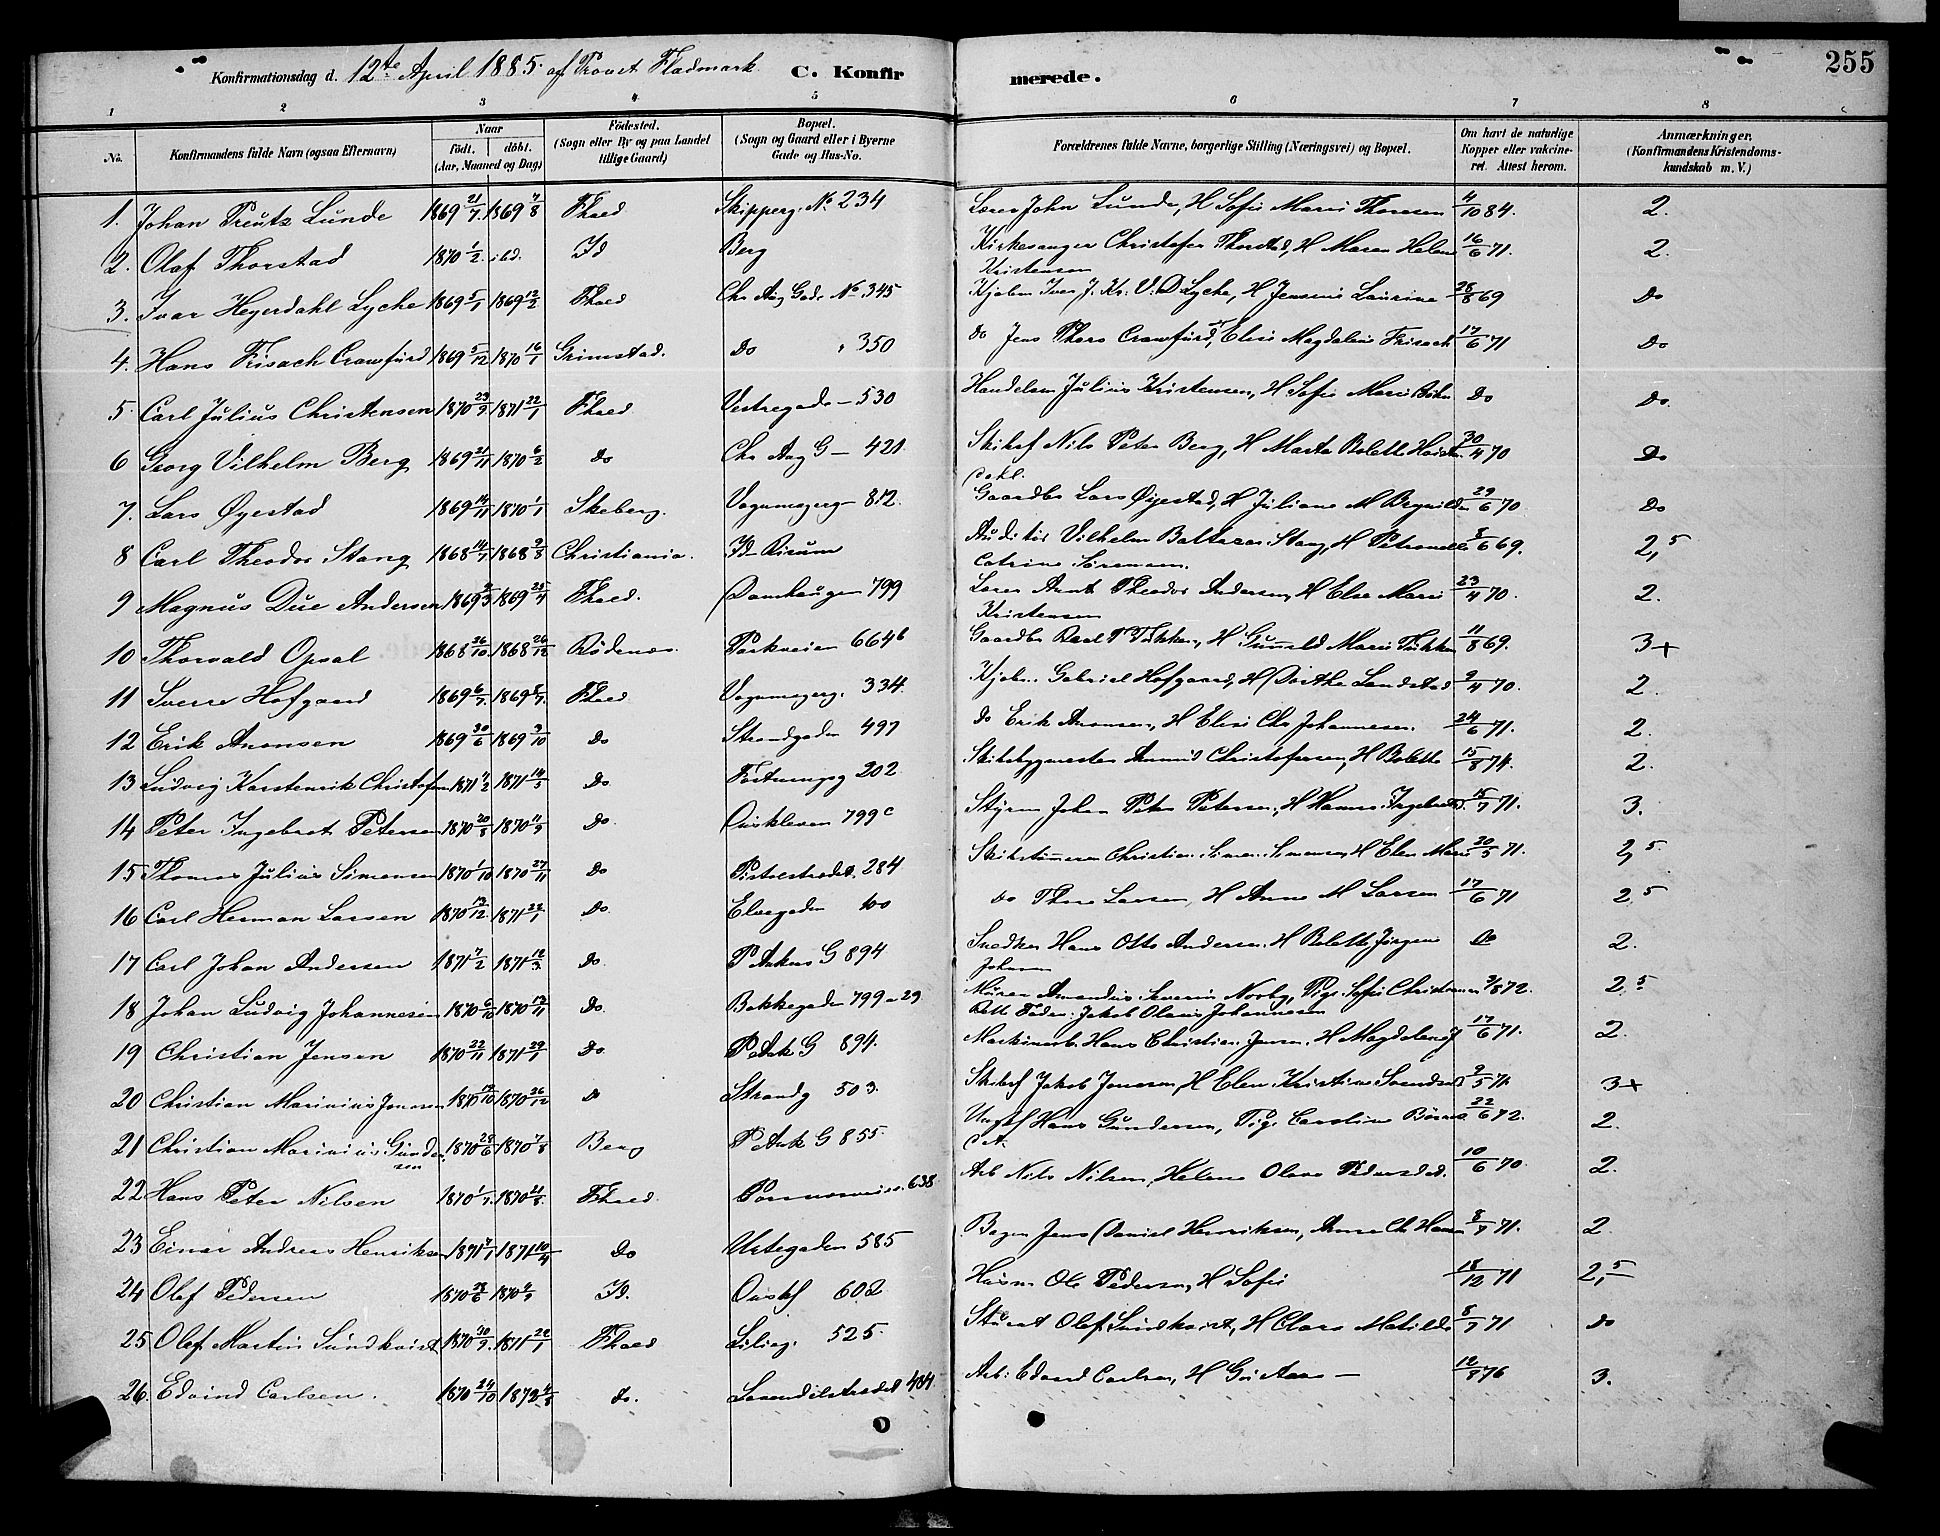 Konfirmationsdag d. 12te April 1885 af Provst Fladmark C. Konfirmerede. 255
1 2 3 4 5 6 7 8
No. Konfirmandens fulde Navn (ogsaa Efternavn) Naar födt. döbt. (Aar, Maaned og Dag) Födested. (Sogn eller By og paa Landet tillige Gaard) Bopæl. (Sogn og Gaard eller i Byerne Gade og Hus-No. Forældrenes fulde Navne, borgerlige Stilling (Næringsvei) og Bopæl. Om havt de naturlige Kopper eller vakcineret. Attest herom. Anmærkninger. (Konfirmandens Kristendomskundskab m. V.)
1. Johan Preutz Lunde 1869 21/7. 1869 7/8 Fhald Skipperg. No 234 Lærer John Lunde, H Sofie Marie Thoresen 4/10 84. 2.
2. Olaf Thorstad 1870 1/2. Id Berg Kirkesanger Christofer Thorstad, H Maren Helene Kristensen 16/6 71. 2.
3. Ivar Heyerdahl Lyche 1869 5/1 1869 12/2 Fhald Chr Aug Gade No 345 Kjøbm Iver J. Kr. V. D Lyche, H Jensine Laurine 28/8 69 Do
4. Hans Frisach Crawfurd 1869 5/12 1870 16/1 Grimstad. Do " 350 do Jens Thors Crawfurd, Elise Magdalene Frisach 17/6 71 Do
5. Carl Julius Christensen 1870 23/9 1871 22/1 Fhald Vestregade – 530 Handelsm Julius Kristensen, H Sofie Marie Do Do.
6 Georg Vilhelm Berg 1869 21/11 1870 6/2 Do Chr Aug G – 421 Skibsf Nils Peter Berg, H Marta Bolette 30/4 70 Do
7. Lars Øyestad 1869 14/11 1870 1/1 Skeberg. Vognmagerg – 812. Gaardbr Lars Øyestad, H Juliane M 29/6 70 Do
8 Carl Theodor Stang 1868 14/7 1868 9/8 Christiania. Id Risum Auditør Vilhelm Baltazar Stang, H Petronelle Catrine Sørensen. 8/6 69. 2,5
9 Magnus Due Andersen 1869 9/3 1869 25/4 Fhald. Damhaugen 799 Lærer Arnt Theodor Andersen, H Else Marie Kristensen 23/4 70. 2.
10 Thorvald Opsal 1868 26/10. 1868 26/12 Rödenæs. Parkveien 664b Gaardbr H Gunnild Marie 11/8 69. 3+
11 Sverre Hofgaard 1869 6/7. 1869 8/9. Fhald Vognmagerg. 334. Kjøbm. Gabriel Hofgaard, H Dorthe Landstad 9/4 70. 2.
12 Erik Aronsen 1869 30/6 1869 3/10 Do Strandgaden 497 do Erik Aronsen, H Elise Chr Johannesen. 24/6 71. 2.
13 Ludvig Karstenrik Christofersen 1871 7/2 1871 14/5 Do 202 Skibsbygmester Amund Christofersen, H Bolette 15/8 74. 2.
14 Peter Ingebret Petersen 1870 20/8 1870 11/9 Do Ouskleven 799c Styrm Johan Peter Petersen, H Hanna 15/7 71. 3.
15 Thomas Julius Simensen 1870 1/10 1870 27/11 Do Pistolstrædet. 284 Skibstømmerm Christian Simensen, H Elen Marie 20/5 71. 2,5
16 Carl Herman Larsen 1870 13/12 1871 22/1 Do. Elvegaden 100 do Thore Larsen, H Anne M Larsen 17/6 71 2,5
17 Carl Johan Andersen 1871 7/2 1871 12/3 Do P Ankers G 894 Snedker Hans Otto Andersen. H Bolette Jørgine Johansen Do 2.
18 Johan Ludvig Johannesen 1870 6/10 1870 13/11 Do. Bakkegaden 799 a 29 Murer Amandus Severin Norby, Pige Sofie Christensen Rett Fader: Jakob Olaus Johannesen 3/8 72. 2,5
19 Christian Jensen 1870 22/11 1871 29/1 Do. P Ank G 894. Maskinarb. Hans Christian Jensen. H Magdalene J 17/6 71. 2.
20 Christian Marinius Jonassen 1870 19/10 1870 26/12 Do Strandg 503. Skibsf Jakob Jonassen, H Elen Kristine 9/5 71. 3+
21 Christian Marinius Gundersen 1870 28/6 1870 7/8 Berg P Ank G 855. Hans Gundersen, Pige Caroline 22/6 72. 2.
22 Hans Peter Nilsen 1870 1/7. 1870 21/8. Fhald. 638 Arb Nils Nilsen, Helene Olava Pedersdat. 10/6 70. 2.
23 Einar Andreas Henriksen 1871 7/1 1871 10/4 Do Urtegaden 585 Bager Jens Daniel Henriksen, Anne Ch 8/7 71. 2.
24 Olaf Pedersen 1870 23/6 1870 4/9 Id. 602 Husm Ole Pedersen, H Sofie 18/12 71 2,5
25 Olaf Martin Sundkvist 1870 30/9. 1871 22/1 Fhald Lilieg. 525. Stuert Olof Sundkvist, H Clara Matilde 8/7 71 do
26. Edvind Carlsen. 1870 24/10 Do. 484 Arb: Edvard Carlsen, H – 12/8 76 3.